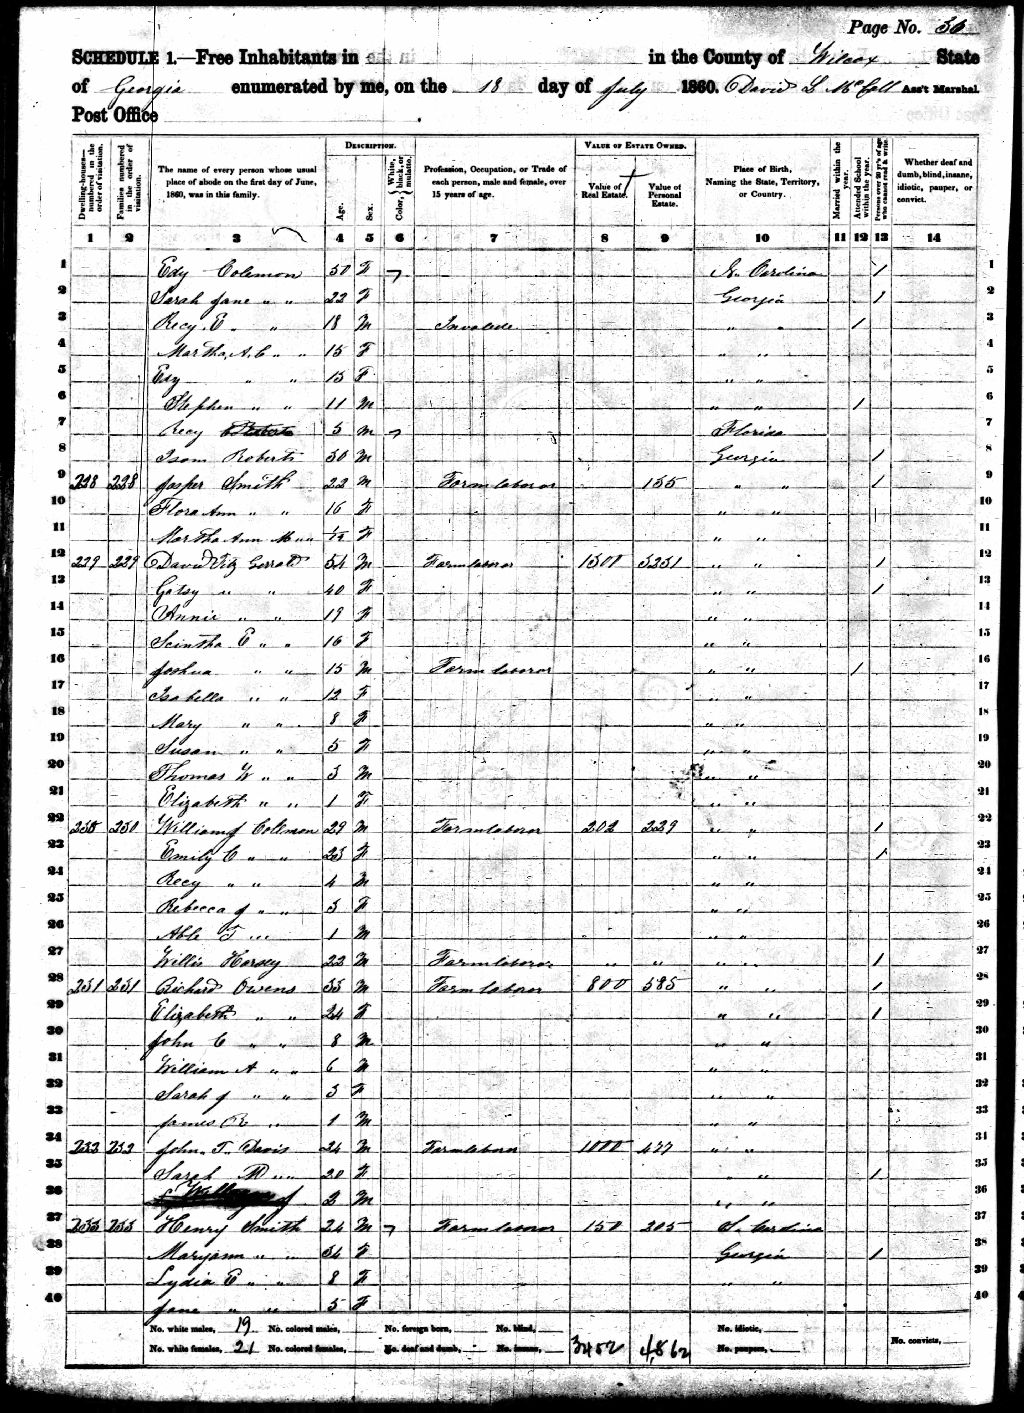 Page No. 36
SCHEDULE 1.—Free Inhabitants in in the County of Wilcox State
of Georgia enumerated by me, on the 18 day of July 1860. David L McCall Ass't Marshal.
Post Office
Dwelling-houses—numbered in the order of visitation. Families numbered in the order of visitation. The name of every person whose usual place of abode on the first day of June, 1860, was in this family. DESCRIPTION. Age. Sex. Color, White, black, or mulatto. Profession, Occupation, or Trade of each person, male and female, over 15 years of age. VALUE OF ESTATE OWNED. Value of Real Estate. Value of Personal Estate. Place of Birth, Naming the State, Territory, or Country. Married within the year. Attended School within the year. Persons over 20 yr's of age who cannot read & write. Whether deaf and dumb, blind, insane, idiotic, pauper, or convict.
1 2 3 4 5 6 7 8 9 10 11 12 13 14
1 Edy Colemon 50 F N. Carolina 1 1
2 Sarah Jane " " 22 F Georgia 1 2
3 Recy E " " 18 M Invalide " " 1 3
4 Martha A. C " " 15 F " " 4
5 Esy " " 13 F 5
6 Stephen " " 11 M " " 1 6
7 Recy 5 M Florida 7
8 Isom Roberts 30 M Georgia 1 8
9 228 228 Jasper Smith 22 M Farm laboror 155 " " 1 9
10 Flora Ann " " 16 F " " 10
11 Martha Ann M " " F " " 11
12 229 229 David Fitz Gerrald 54 M Farm laboror 1500 3251 " " 1 12
13 Gatsy " " 40 F " " 1 13
14 Annie " " 19 F " " 14
15 Scintha E " " 16 F " " 15
16 Joshua " " 15 M Farm laboror " " 1 16
17 Isabella " " 12 F " " 17
18 Mary " " 8 F " " 18
19 Susan " " 5 F " " 19
20 Thomas W " " 3 M " " 20
21 Elizabeth " " 1 F " " 21
22 230 230 William J Colemon 29 M Farm laboror 202 229 " " 1 22
23 Emily C " " 23 F " " 1 23
24 Recy " " 4 M " " 24
25 Rebecca J " " 3 F " " 25
26 Able T " " 1 M " " 26
27 Willis Horsey 22 M Farm laboror " " " " 1 27
28 231 231 Richard Owens 33 M Farm laboror 800 585 " " 1 28
29 Elizabeth " " 24 F " " 1 29
30 John C " " 8 M " " 30
31 William A " " 6 M " " 31
32 Sarah J " " 3 F " " 32
33 James R " 1 M " " 33
34 232 232 John T. Davis 24 M Farm laboror 1000 477 " " 34
35 Sarah M " " 20 F " " 1 35
36 J 2 M " " 36
37 233 233 Henry Smith 24 M Farm laboror 150 205 S. Carolina 37
38 Maryann " " 34 F Georgia 1 38
39 Lydia E " " 8 F " " 39
40 Jane " " 5 F 40
No. white males, 19 No. colored males, No. foreign born, No. blind, No. idiotic,
No. white females, 21 No. colored females, No. deaf and dumb, No. insane, 3452 4,862 No. paupers, No. convicts,